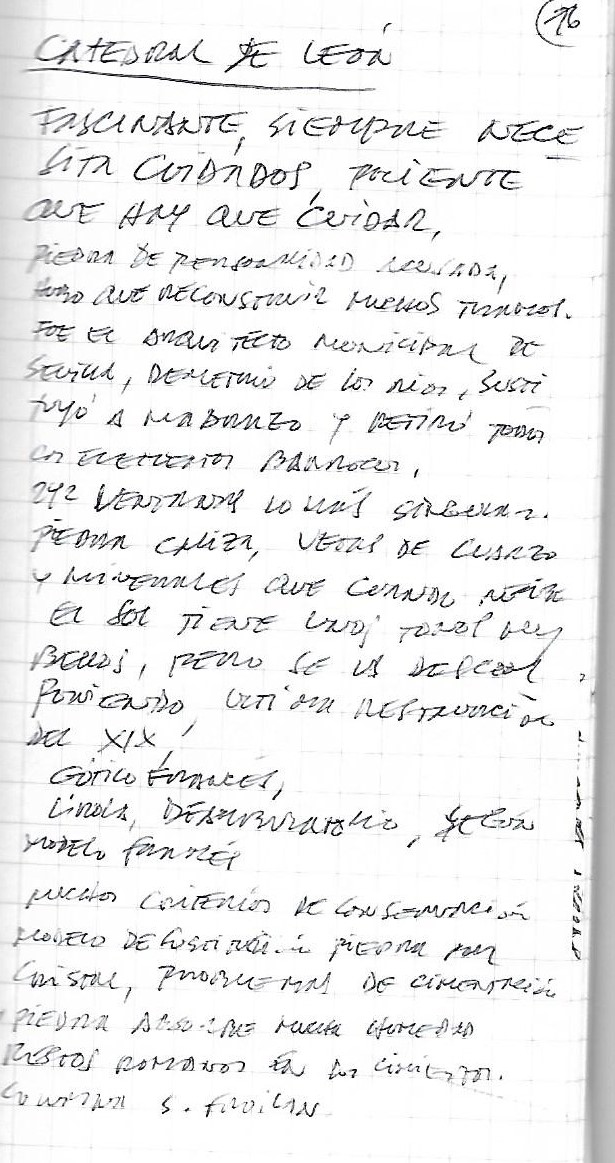 16
CATEDRAL DE LEÓN
FASCINANTE, SIEMPRE NECE
SITA CUIDADOS, PACIENTE
QUE HAY QUE CUIDAR,
PIEDRA DE PERSONALIDAD ACUSADA,
HUBO QUE RECONSTRUIR MUCHOS TRAMOS.
FUE EL ARQUITECTO MUNICIPAL DE
SEVILLA, DEMETRIO DE LOS RIOS, SUSTI
TUYÓ A MADRAZO Y RETIRÓ TODOS
LOS ELEMENTOS BARROCOS,
292 VENTANAS LO MÁS SINGULAR.
PIEDRA CALIZA, VETAS DE CUARZO
Y MINERALES QUE CUANDO INCIDE
EL SOL TIENE UNOS TONOS MUY
BELLOS, PERO SE VA DESCOM
PONIENDO, ULTIMA RESTAURACIÓN
DEL XIX,
GÓTICO FRANCÉS,
GIROLA, DEAMBULATORIO, SEGÚN
MODELO FRANCÉS
MUCHOS CRITERIOS DE CONSERVACIÓN
MODELO DE SUSTITUCIÓN PIEDRA POR
CRISTAL, PROBLEMAS DE CIMENTACIÓN
PIEDRA ABSORBE MUCHA HUMEDAD
RESTOS ROMANOS EN LOS CIMIENTOS.
COLUMNA S. FROILAN